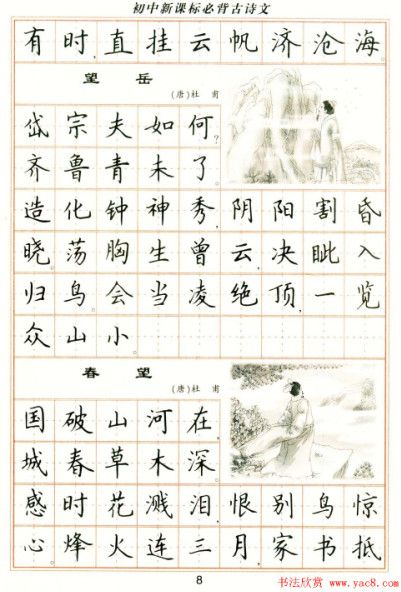 初中新课标必背古诗文
有时,直挂云帆济沧海。
望岳
(唐)杜甫
岱宗夫如何?
齐鲁青未了。
造化钟神秀,阴阳割昏
晓。荡胸生曾云,决眦入
归鸟。会当凌绝顶,一览
众山小。
春望
(唐)杜甫
国破山河在,
城春草木深。
感时花溅泪,恨别鸟惊
心。烽火连三月,家书抵
8
书法欣赏 www.yac8.com